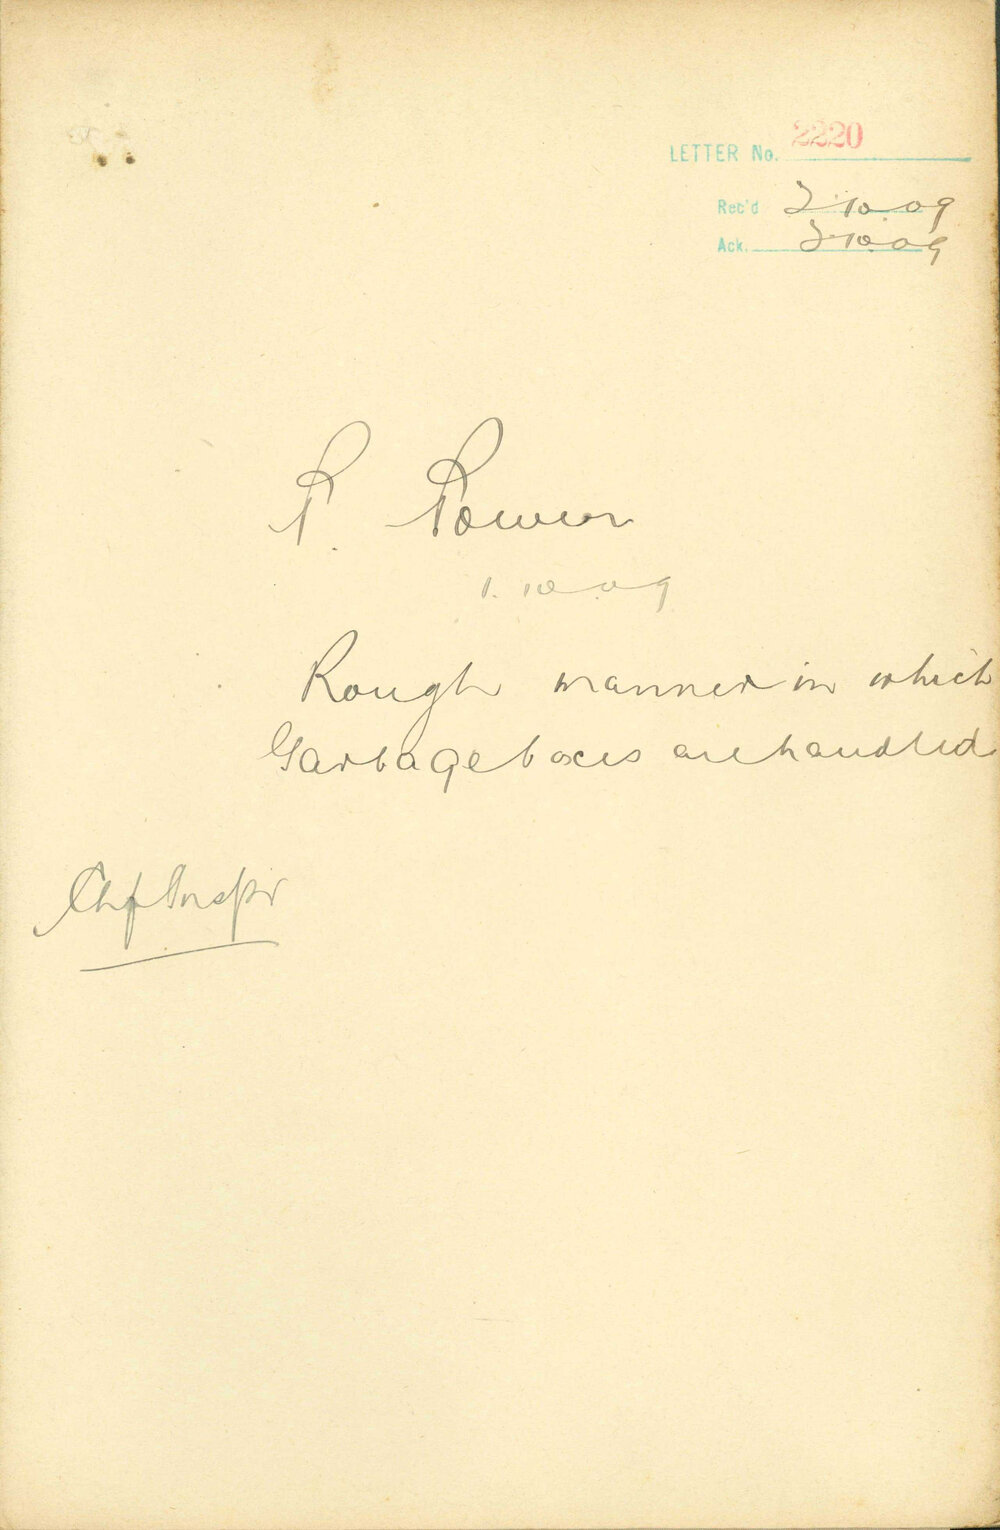 LETTER No. 2220
Rec'd 2.10.09
Ack. 2.10.09
P. Power
1.10.09
Rough manner in which
Garbage boxes are handled
Chf Inspr